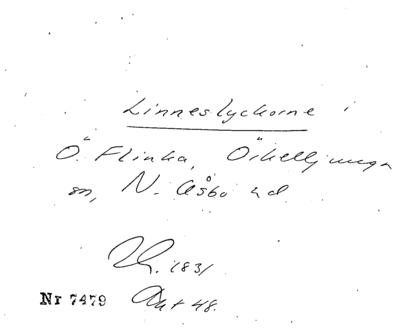 Linneslyckorne i
Ö. Flinka, Örkelljunga
sn, N. Åsbo hd.
1831
Nr 7479 Akt 48.